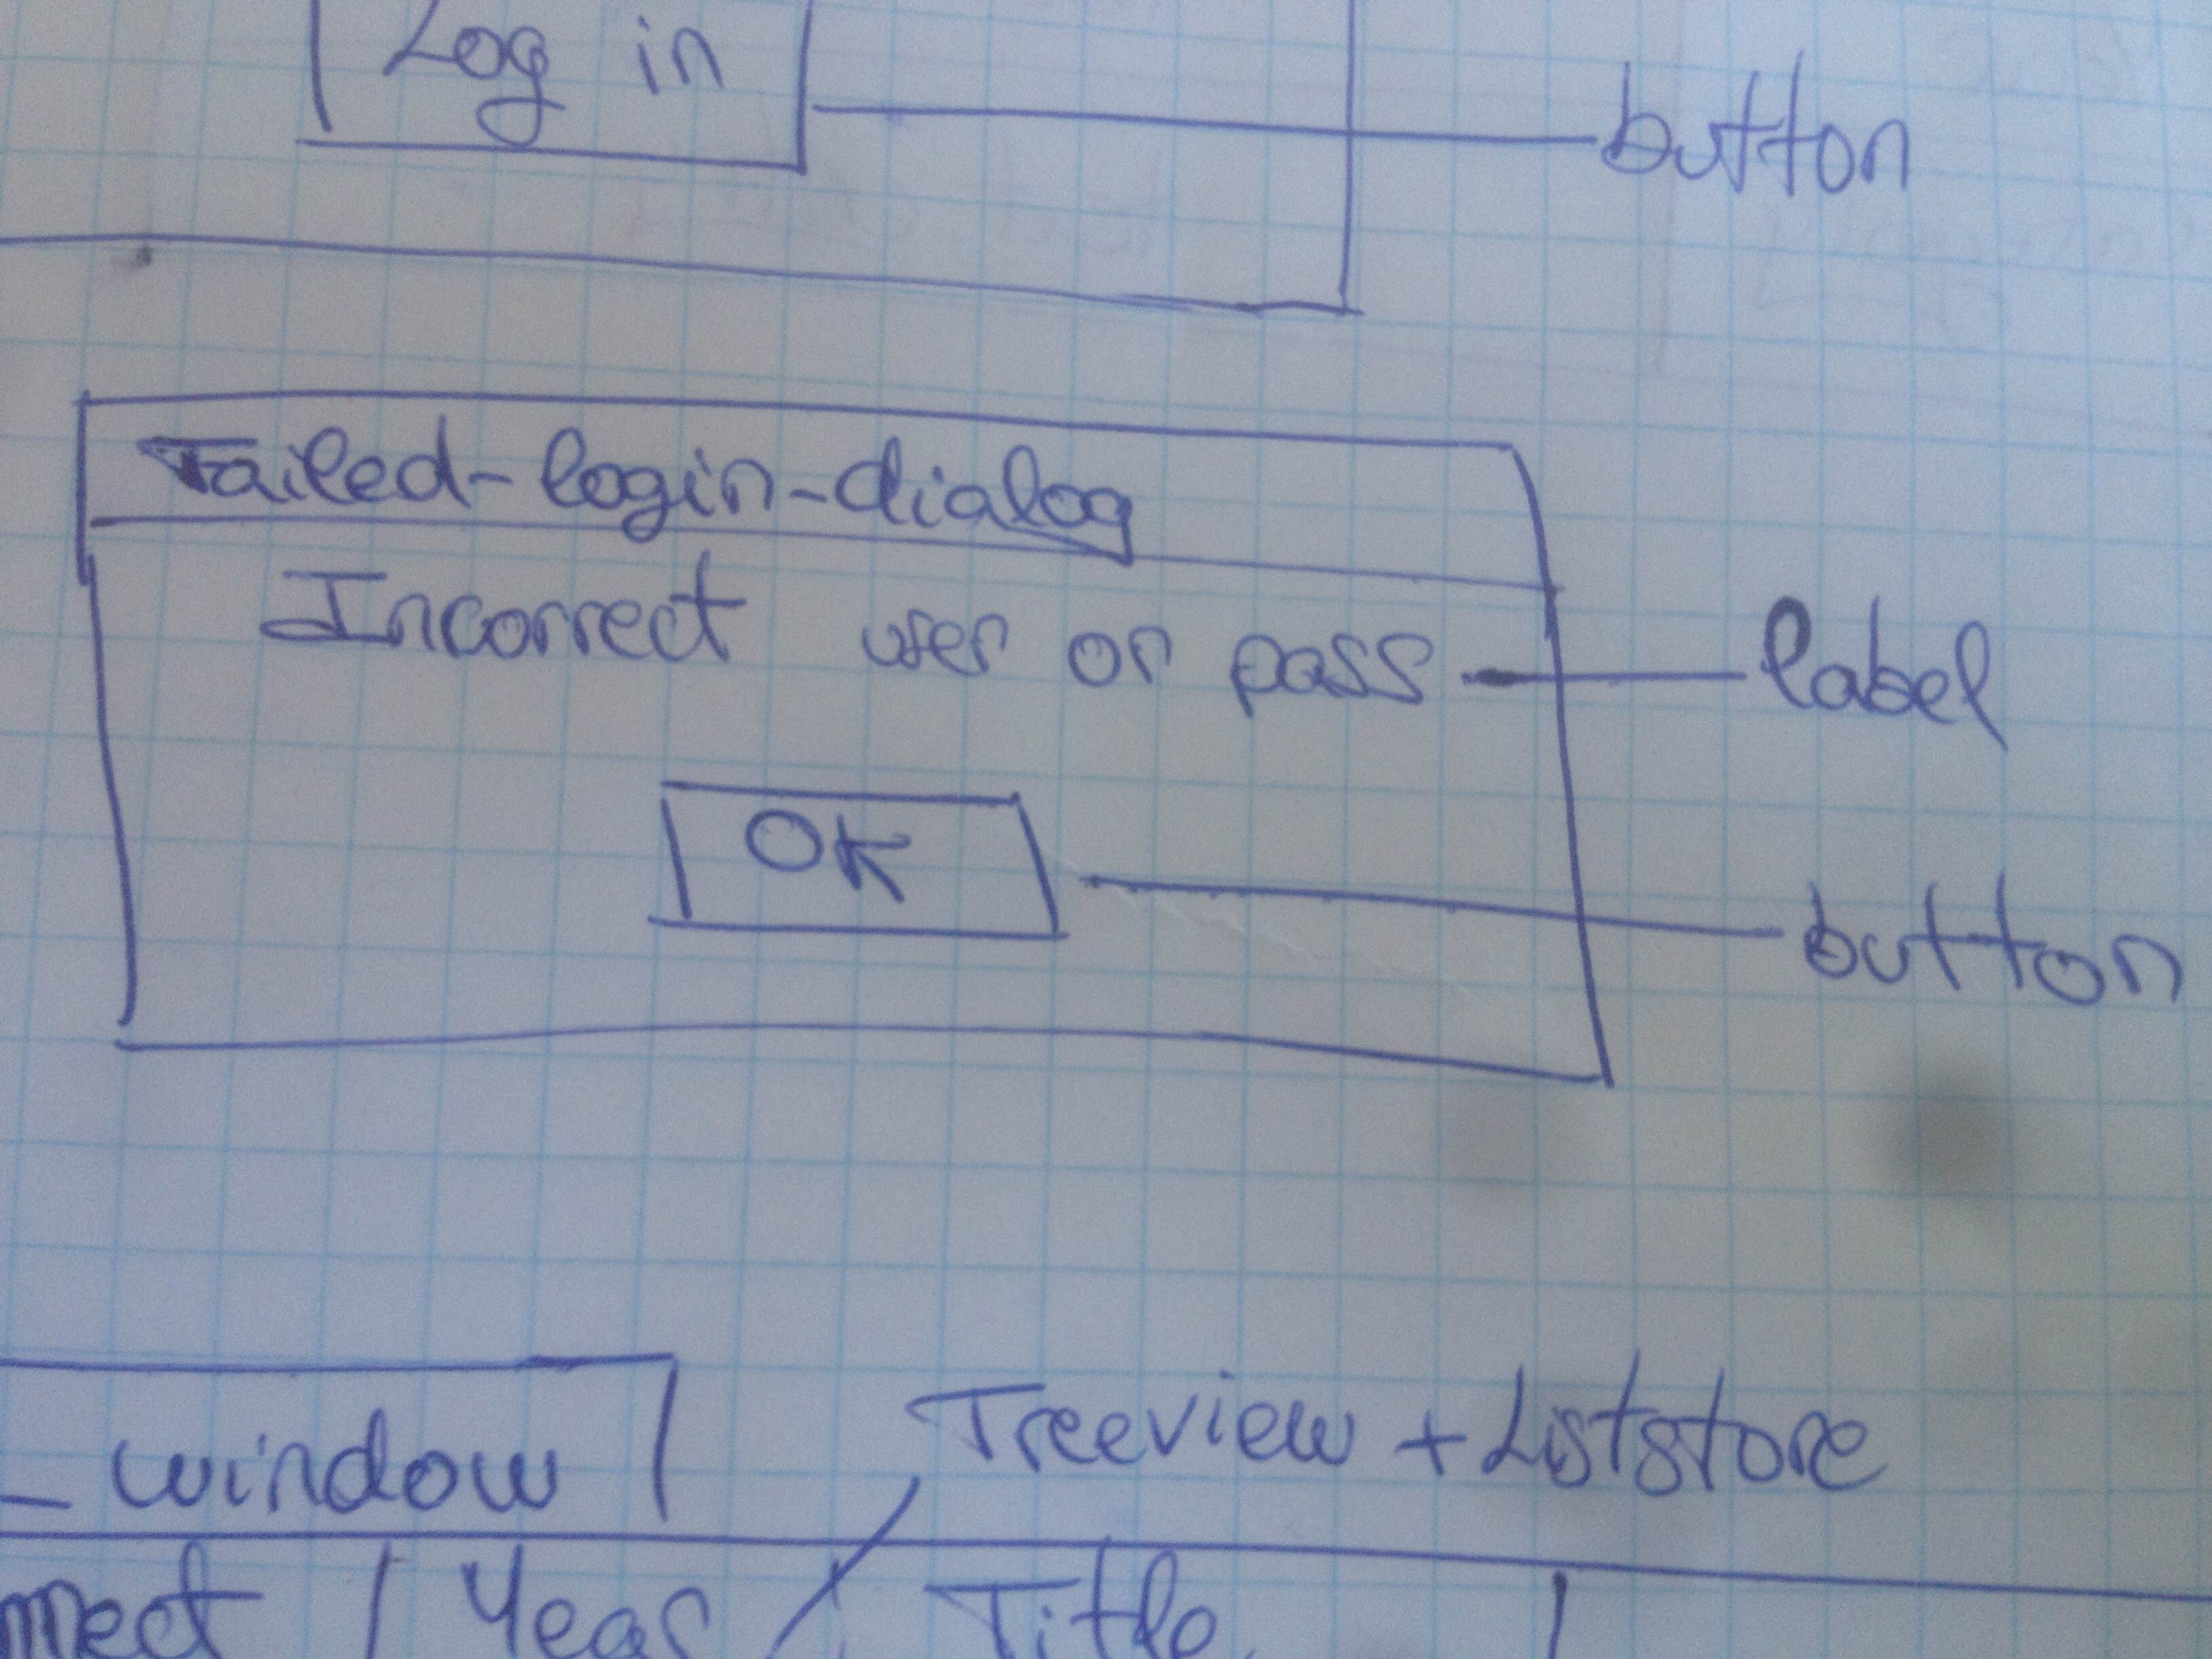 Log in button
Failed-login-dialog
Incorrect user or pass label
OK button
_window Treeview + Liststore
Year Title